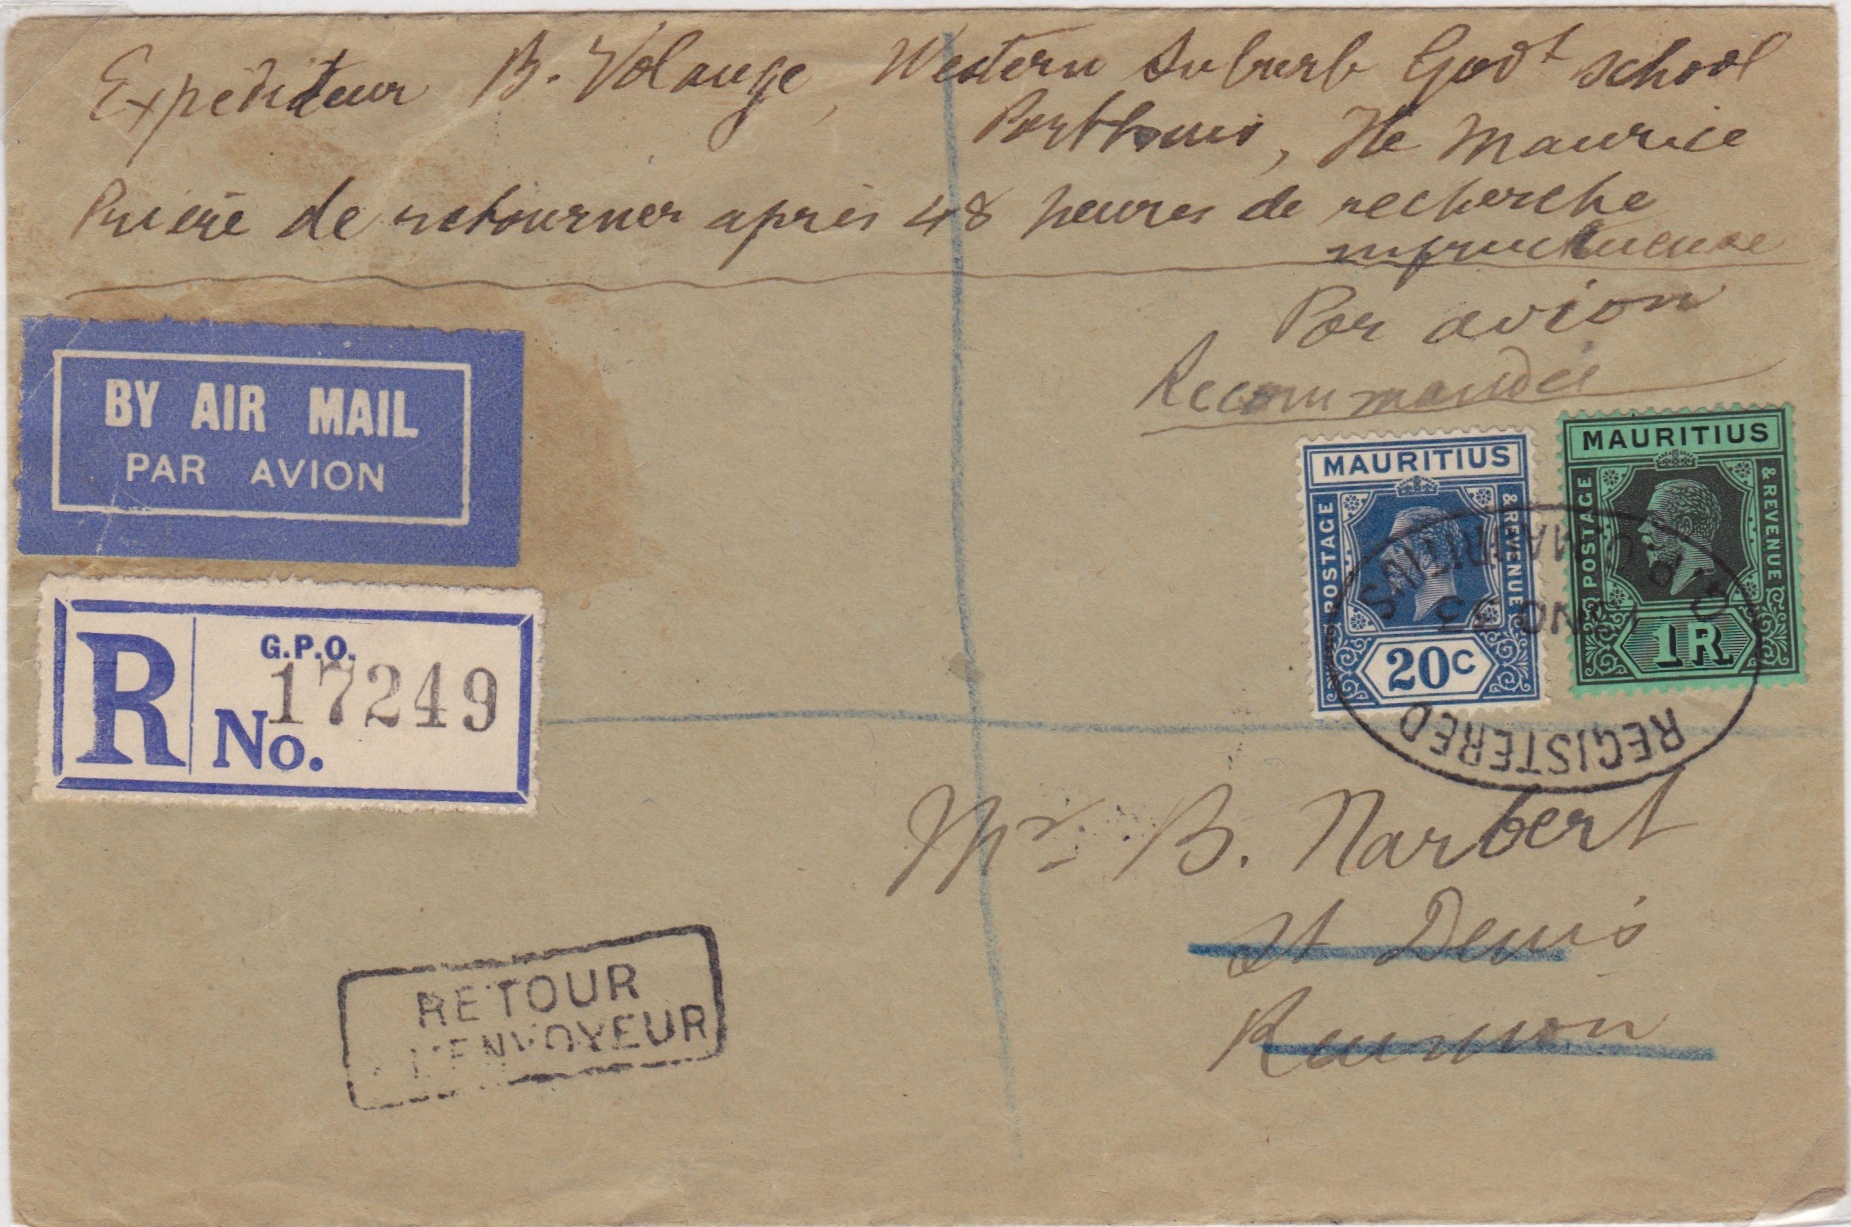 Expéditeur B. Volange, Western Suburb Govt School
Port Louis, Ile Maurice
Prière de retourner après 48 heures de recherche
infructueuse
Par avion
Recommandée
BY AIR MAIL
PAR AVION
R
G.P.O.
No. 17249
MAURITIUS
POSTAGE
& REVENUE
20c
MAURITIUS
POSTAGE
& REVENUE
1R
MAURITIUS
REGISTERED
Mr B. Narbert
St Denis
Reunion
RETOUR
L'ENVOYEUR